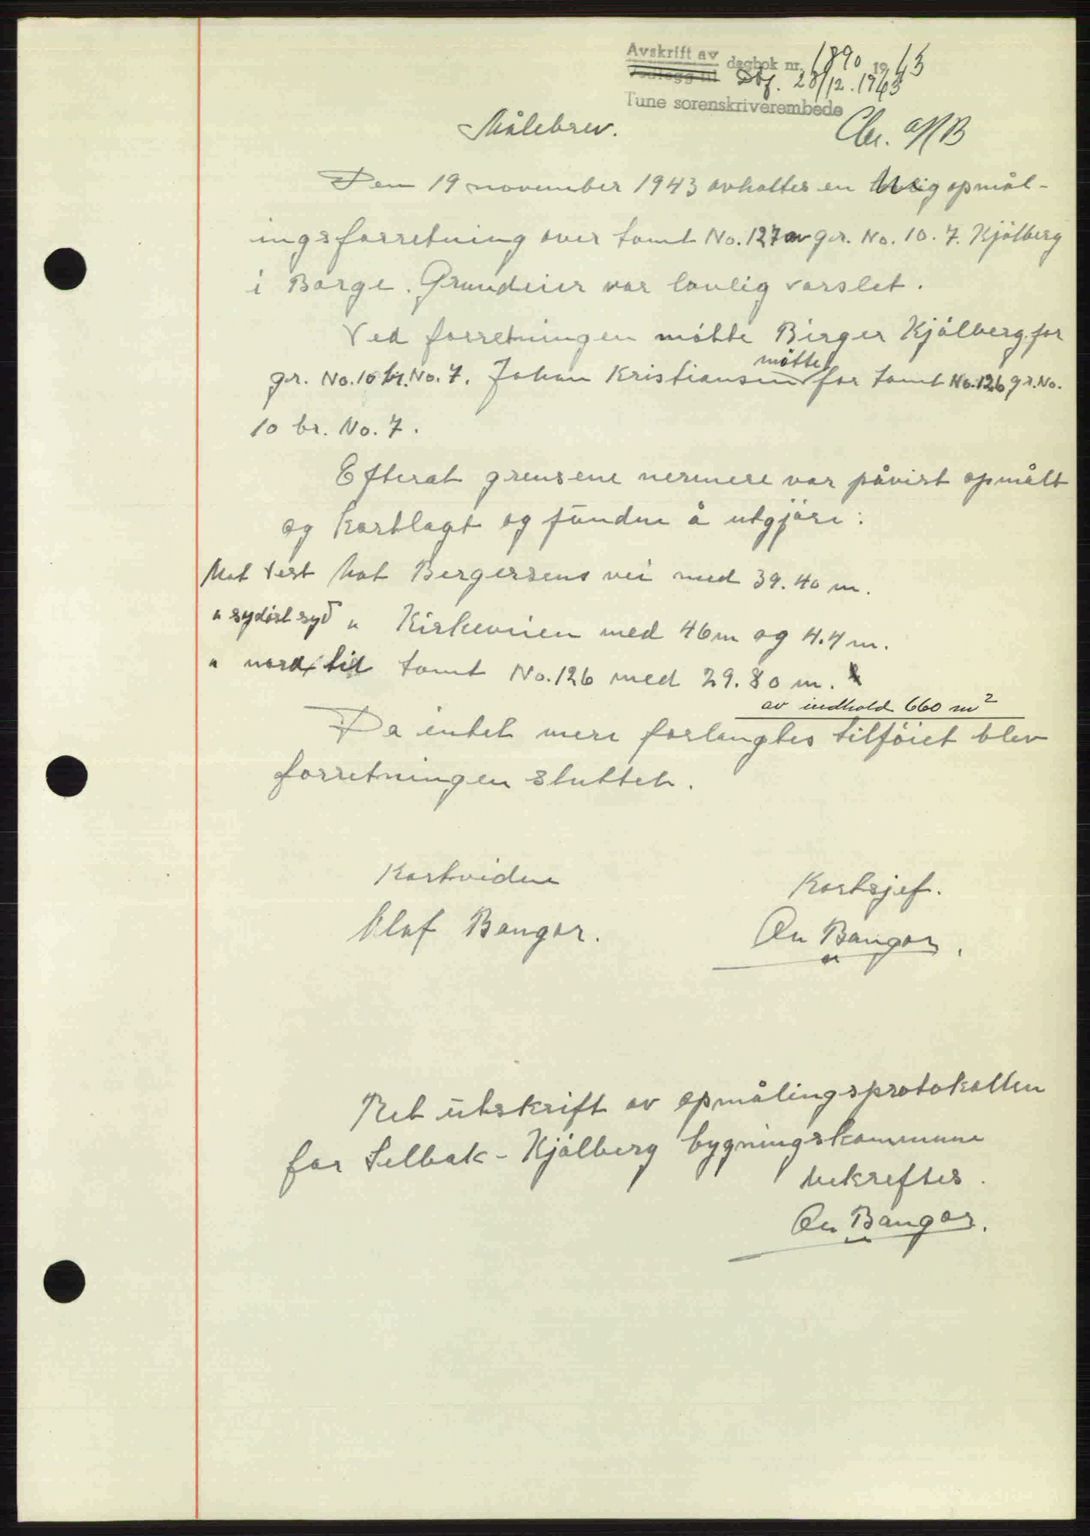 Avskrift av dagbok nr. 1890 1943
Dbf. 28/12.1943
Tune sorenskriverembede
Målebrev.
Den 19 november 1943 avholtes en opmål-
ingsforretning over tomt No. 127 av gr. No. 10. 7. Kjölberg
i Borge. Grundeier var lovlig varslet.
Ved forretningen mötte Birger Kjölberg for
mötte
gr. No. 10 br. No. 7. Johan Kristiansen for tomt No. 126 gr. No.
10 br. No. 7.
Efterat grensene nermere var påvist opmålt
og kartlagt og funden å utgjöre:
Mot Vest mot Bergersens vei med 39.40 m.
" sydöst syd " Kirkeveien med 46 m og 4.4 m.
" nord til tomt No. 126 med 29.80 m.
av indhold 660 m²
Da intet mere forlangtes tilföiet blev
forretningen sluttet.
Kartviden Kartsjef.
Olaf Bangor. On Bangor.
Ret utskrift av opmålingsprotokollen
for Selbak - Kjölberg bygningskommune
bekreftes.
On Bangor.